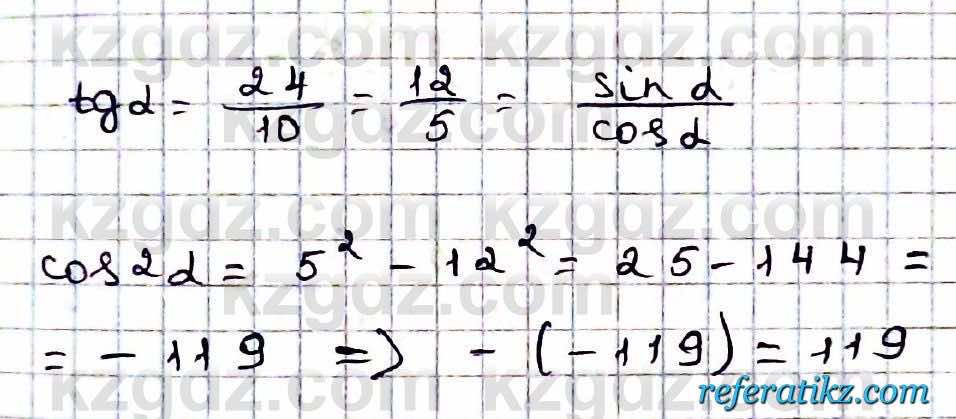 kzgdz.com kzgdz.com
tg α = 24/10 = 12/5 = sin α/cos α
kzgdz.com
kzgdz.com kzgdz.com
cos 2α = 5² - 12² = 25 - 144 =
kzgdz.com
= - 119 => - (-119) = 119
kzgdz.com kzgdz.com
referatikz.com